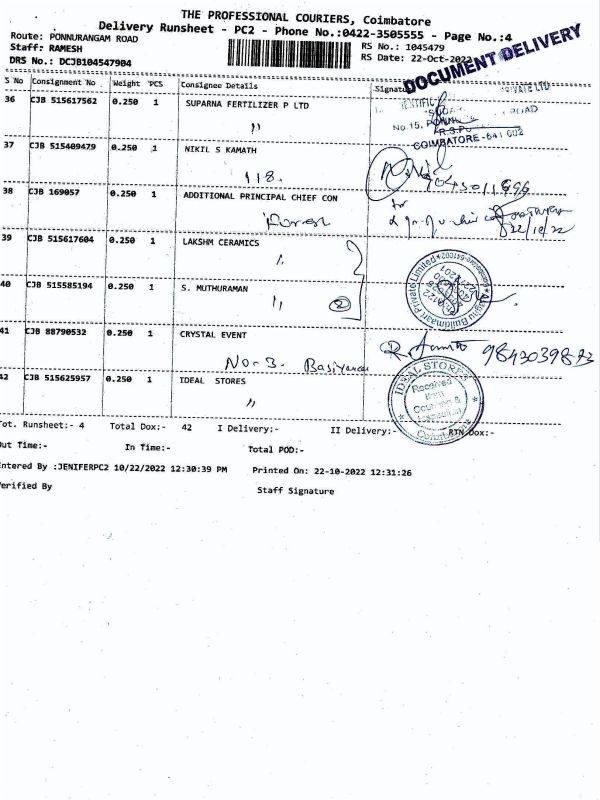 THE PROFESSIONAL COURIERS, Coimbatore
Delivery Runsheet - PC2 - Phone No.:0422-3505555 - Page No.:4
Route: PONNURANGAM ROAD
RS No.: 1045479
Staff: RAMESH
RS Date: 22-Oct-2022
DRS No.: DCJB104547904
DOCUMENT DELIVERY
S No Consignment No Weight PCS Consignee Details Signatu
36 CJB 515617562 0.250 1 SUPARNA FERTILIZER P LTD
PRIVATE LTD
ROAD
No.15,
R.S.Pu
COIMBATORE - 641 002
"
37 CJB 515409479 0.250 1 NIKIL S KAMATH
118.
38 CJB 169057 0.250 1 ADDITIONAL PRINCIPAL CHIEF CON
for
22/10/22
39 CJB 515617604 0.250 1 LAKSHM CERAMICS
Private Limited
40 CJB 515585194 0.250 1 S. MUTHURAMAN
" 2
41 CJB 88790532 0.250 1 CRYSTAL EVENT
No-3.
42 CJB 515625957 0.250 1 IDEAL STORES
"
IDEAL STORES
Received
Item
Tot. Runsheet:- 4 Total Dox:- 42 I Delivery:- II Delivery:- RTN Dox:-
Out Time:- In Time:- Total POD:-
Entered By :JENIFERPC2 10/22/2022 12:30:39 PM Printed On: 22-10-2022 12:31:26
Verified By Staff Signature